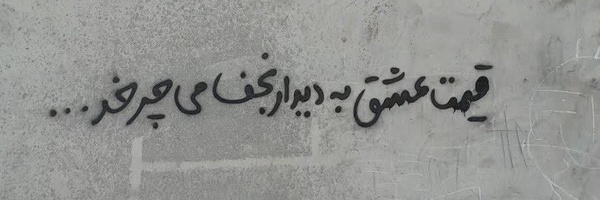 قیمت عشق به دیدار نجف می چرخد ...